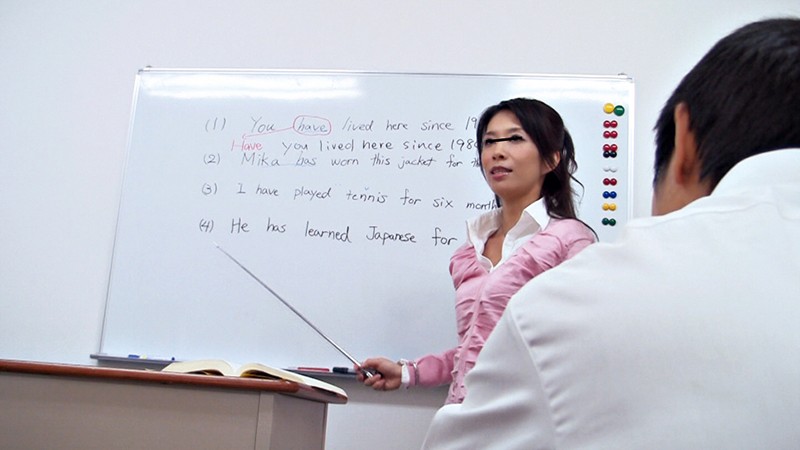 (1) You have lived here since 19
Have you lived here since 198
(2) Mika has worn this jacket for
(3) I have played tennis for six month
(4) He has learned Japanese for